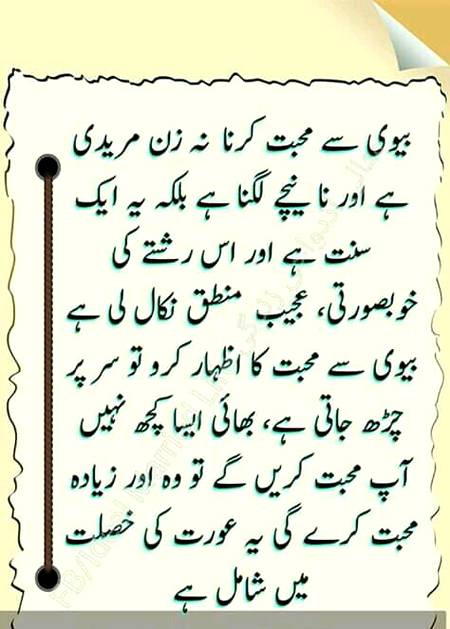 بیوی سے محبت کرنا نہ زن مریدی
ہے اور نا نیچے لگنا ہے بلکہ یہ ایک
سنت ہے اور اس رشتے کی
خوبصورتی، عجیب منطق نکال لی ہے
بیوی سے محبت کا اظہار کرو تو سر پر
چڑھ جاتی ہے، بھائی ایسا کچھ نہیں
آپ محبت کریں گے تو وہ اور زیادہ
محبت کرے گی یہ عورت کی خصلت
میں شامل ہے